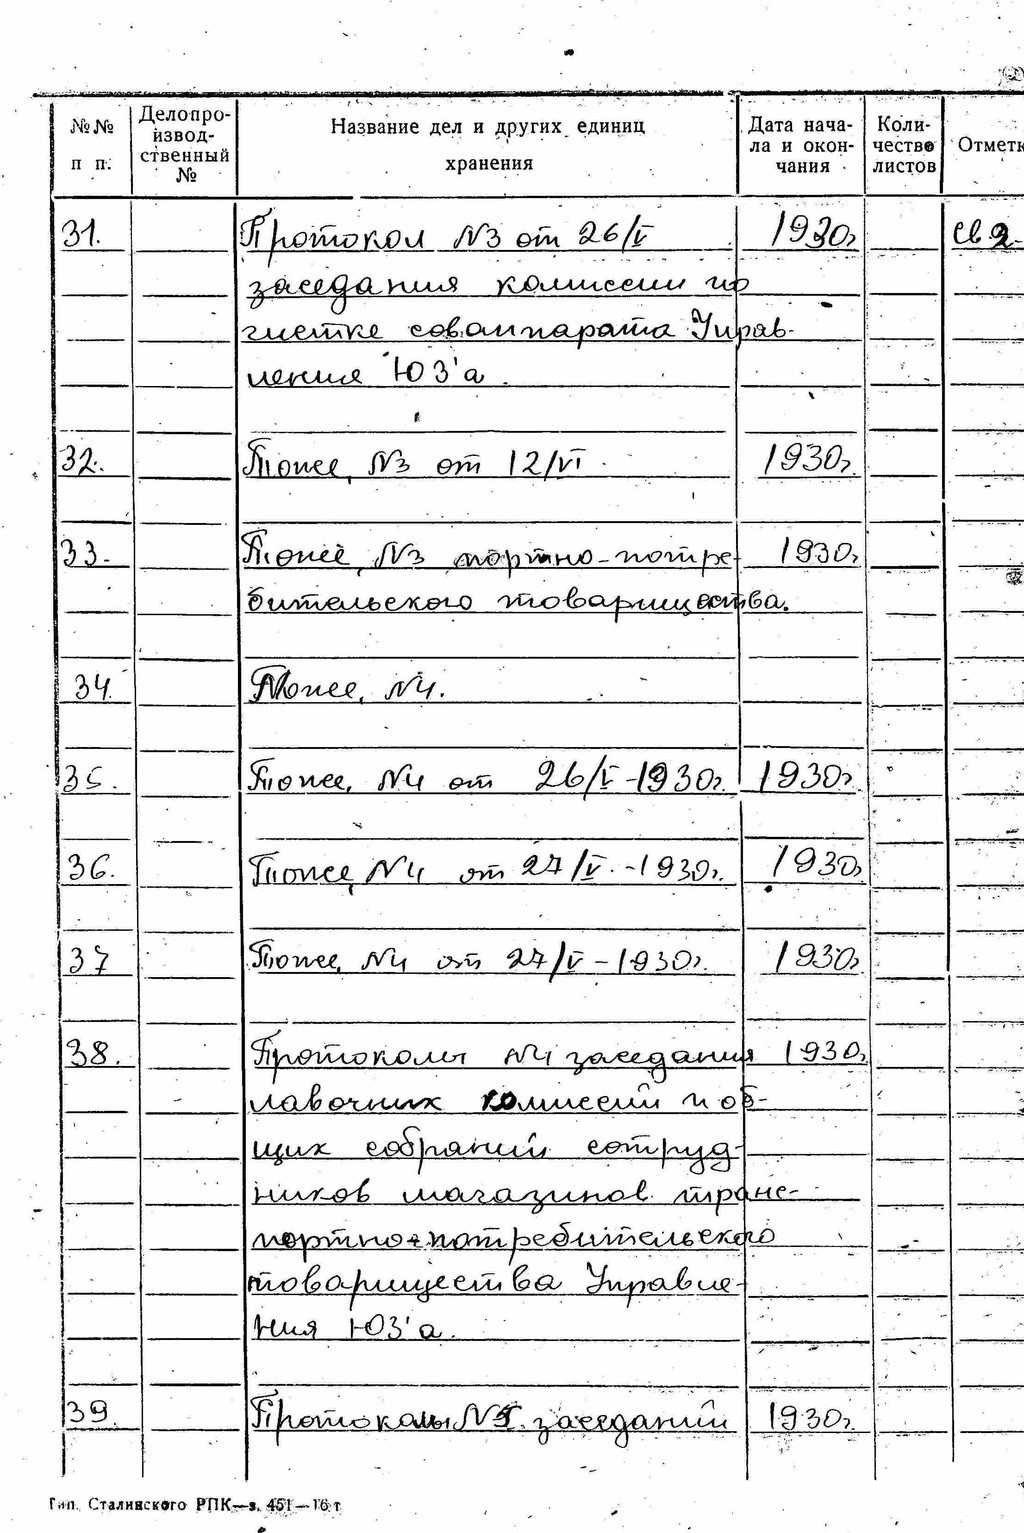 №№ п п. Делопро-изводственный № Название дел и других единиц хранения Дата начала и окончания Количество листов Отметк
31. Протокол №3 от 26/V 1930г св 2
заседания комиссии по
чистке соваппарата Управ-
ления ЮЗ'а.
32. Тоже, №3 от 12/VI 1930г.
33. Тоже, №3 портно-потре- 1930г
бительского товарищества.
34. Тоже, №4.
35. Тоже, №4 от 26/V-1930г. 1930г.
36. Тоже, №4 от 27/V.-1930г. 1930г
37 Тоже, №4 от 27/V-1930г. 1930г
38. Протоколы №4 заседания 1930г.
лавочних комиссий и об-
щих собраний сотруд-
ников магазинов транс-
портно-потребительского
товарищества Управле-
ния ЮЗ'а.
39. Протоколы №5 заседаний 1930г.
Тип. Сталинского РПК—з. 451—16 т